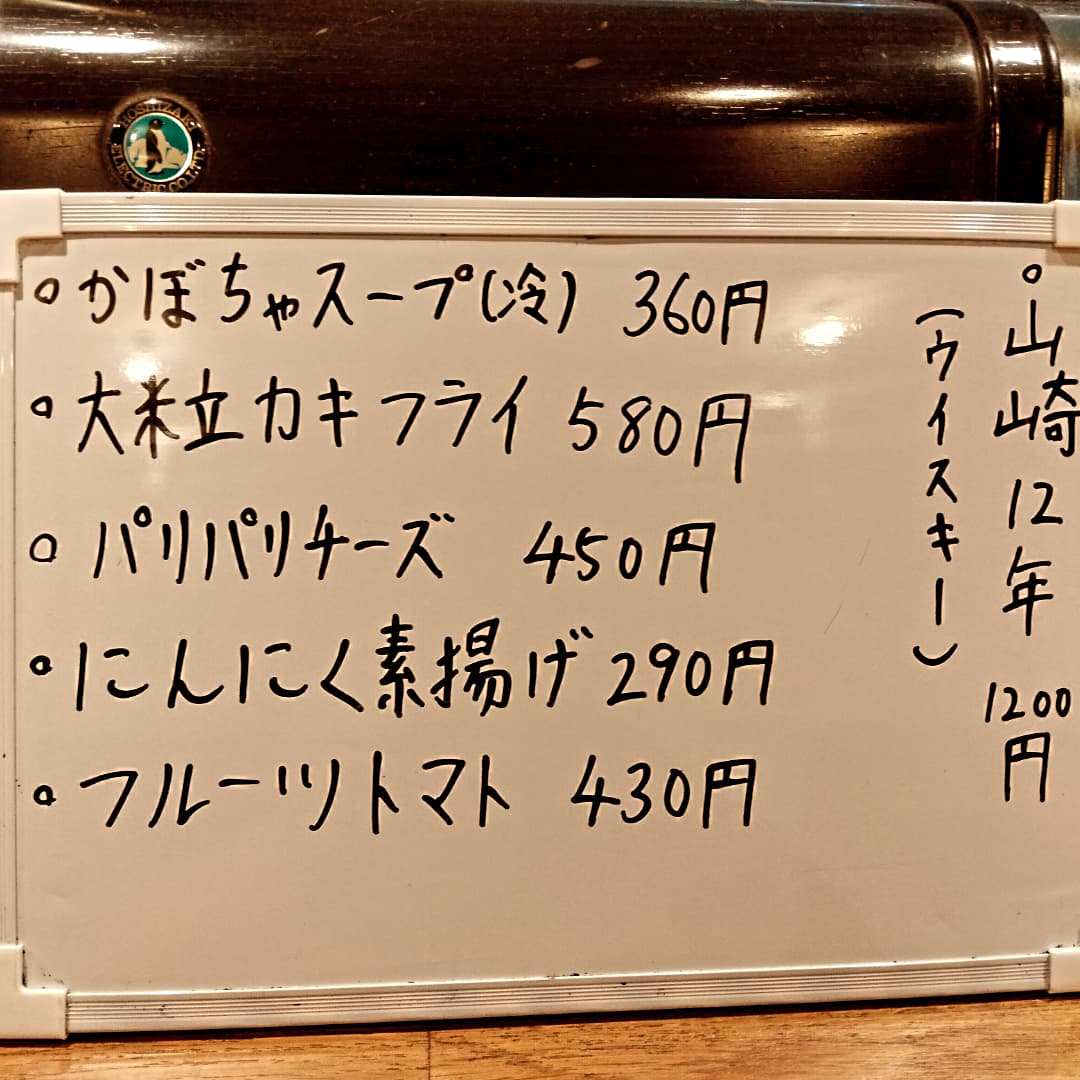 HOSHIZAKI ELECTRIC CO.LTD.
かぼちゃスープ(冷) 360円
大粒カキフライ 580円
パリパリチーズ 450円
にんにく素揚げ 290円
フルーツトマト 430円
山崎12年 1200円
(ウイスキー)